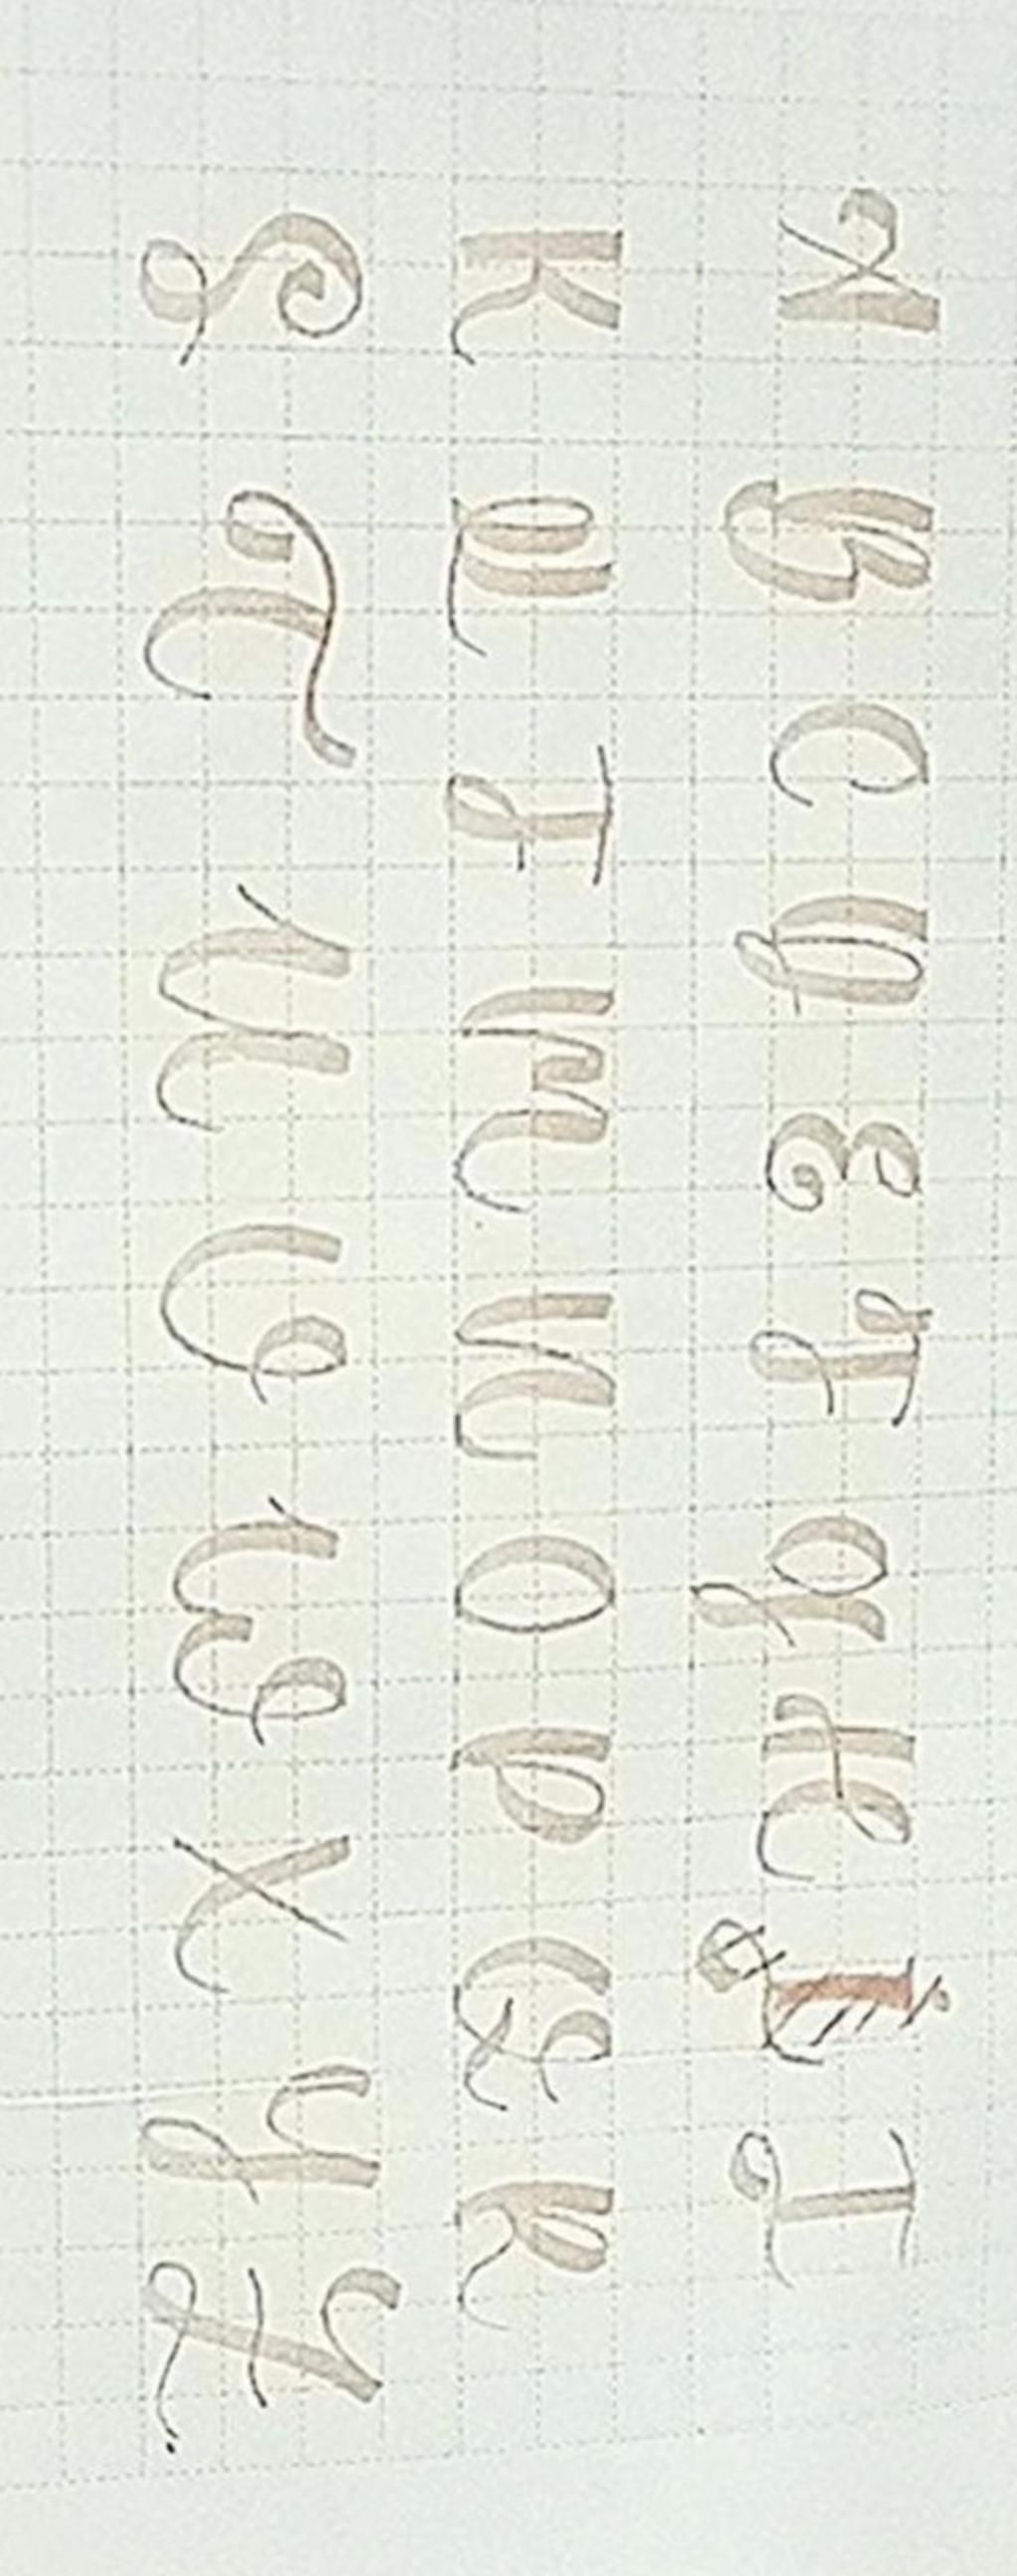 A B C D E F G H I
K L J M N O P Q R
S T U V W X Y Z